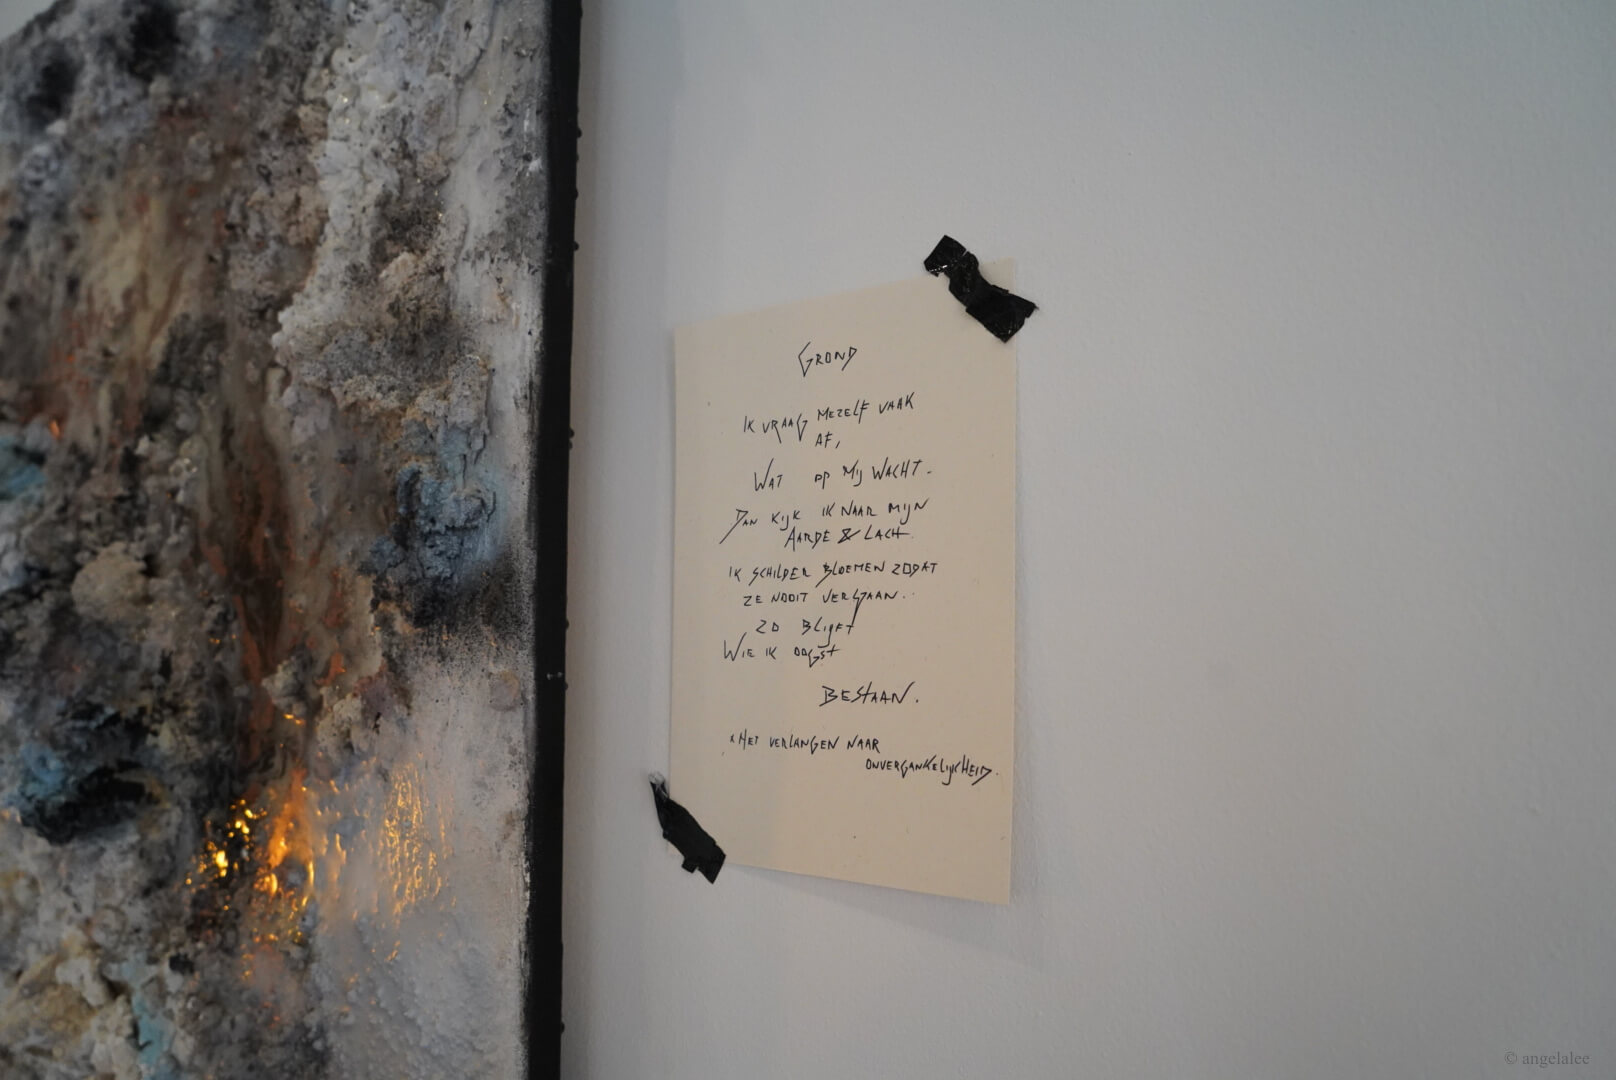 GROND
IK VRAAG MEZELF VAAK
AF,
WAT OP MIJ WACHT.
DAN KIJK IK NAAR MIJN
AARDE & LACH.
IK SCHILDER BLOEMEN ZODAT
ZE NOOIT VERGAAN..
ZO BLIJFT
WIE IK OOGST
BESTAAN.
*HET VERLANGEN NAAR
ONVERGANKELIJKHEID.
© angelalee